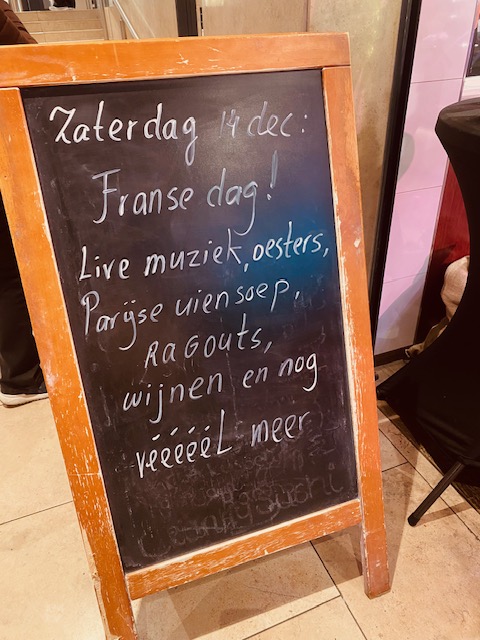 Zaterdag 14 dec:
Franse dag!
Live muziek, oesters,
Parijse uiensoep,
RAGOUTS,
wijnen en nog
véééééL meer